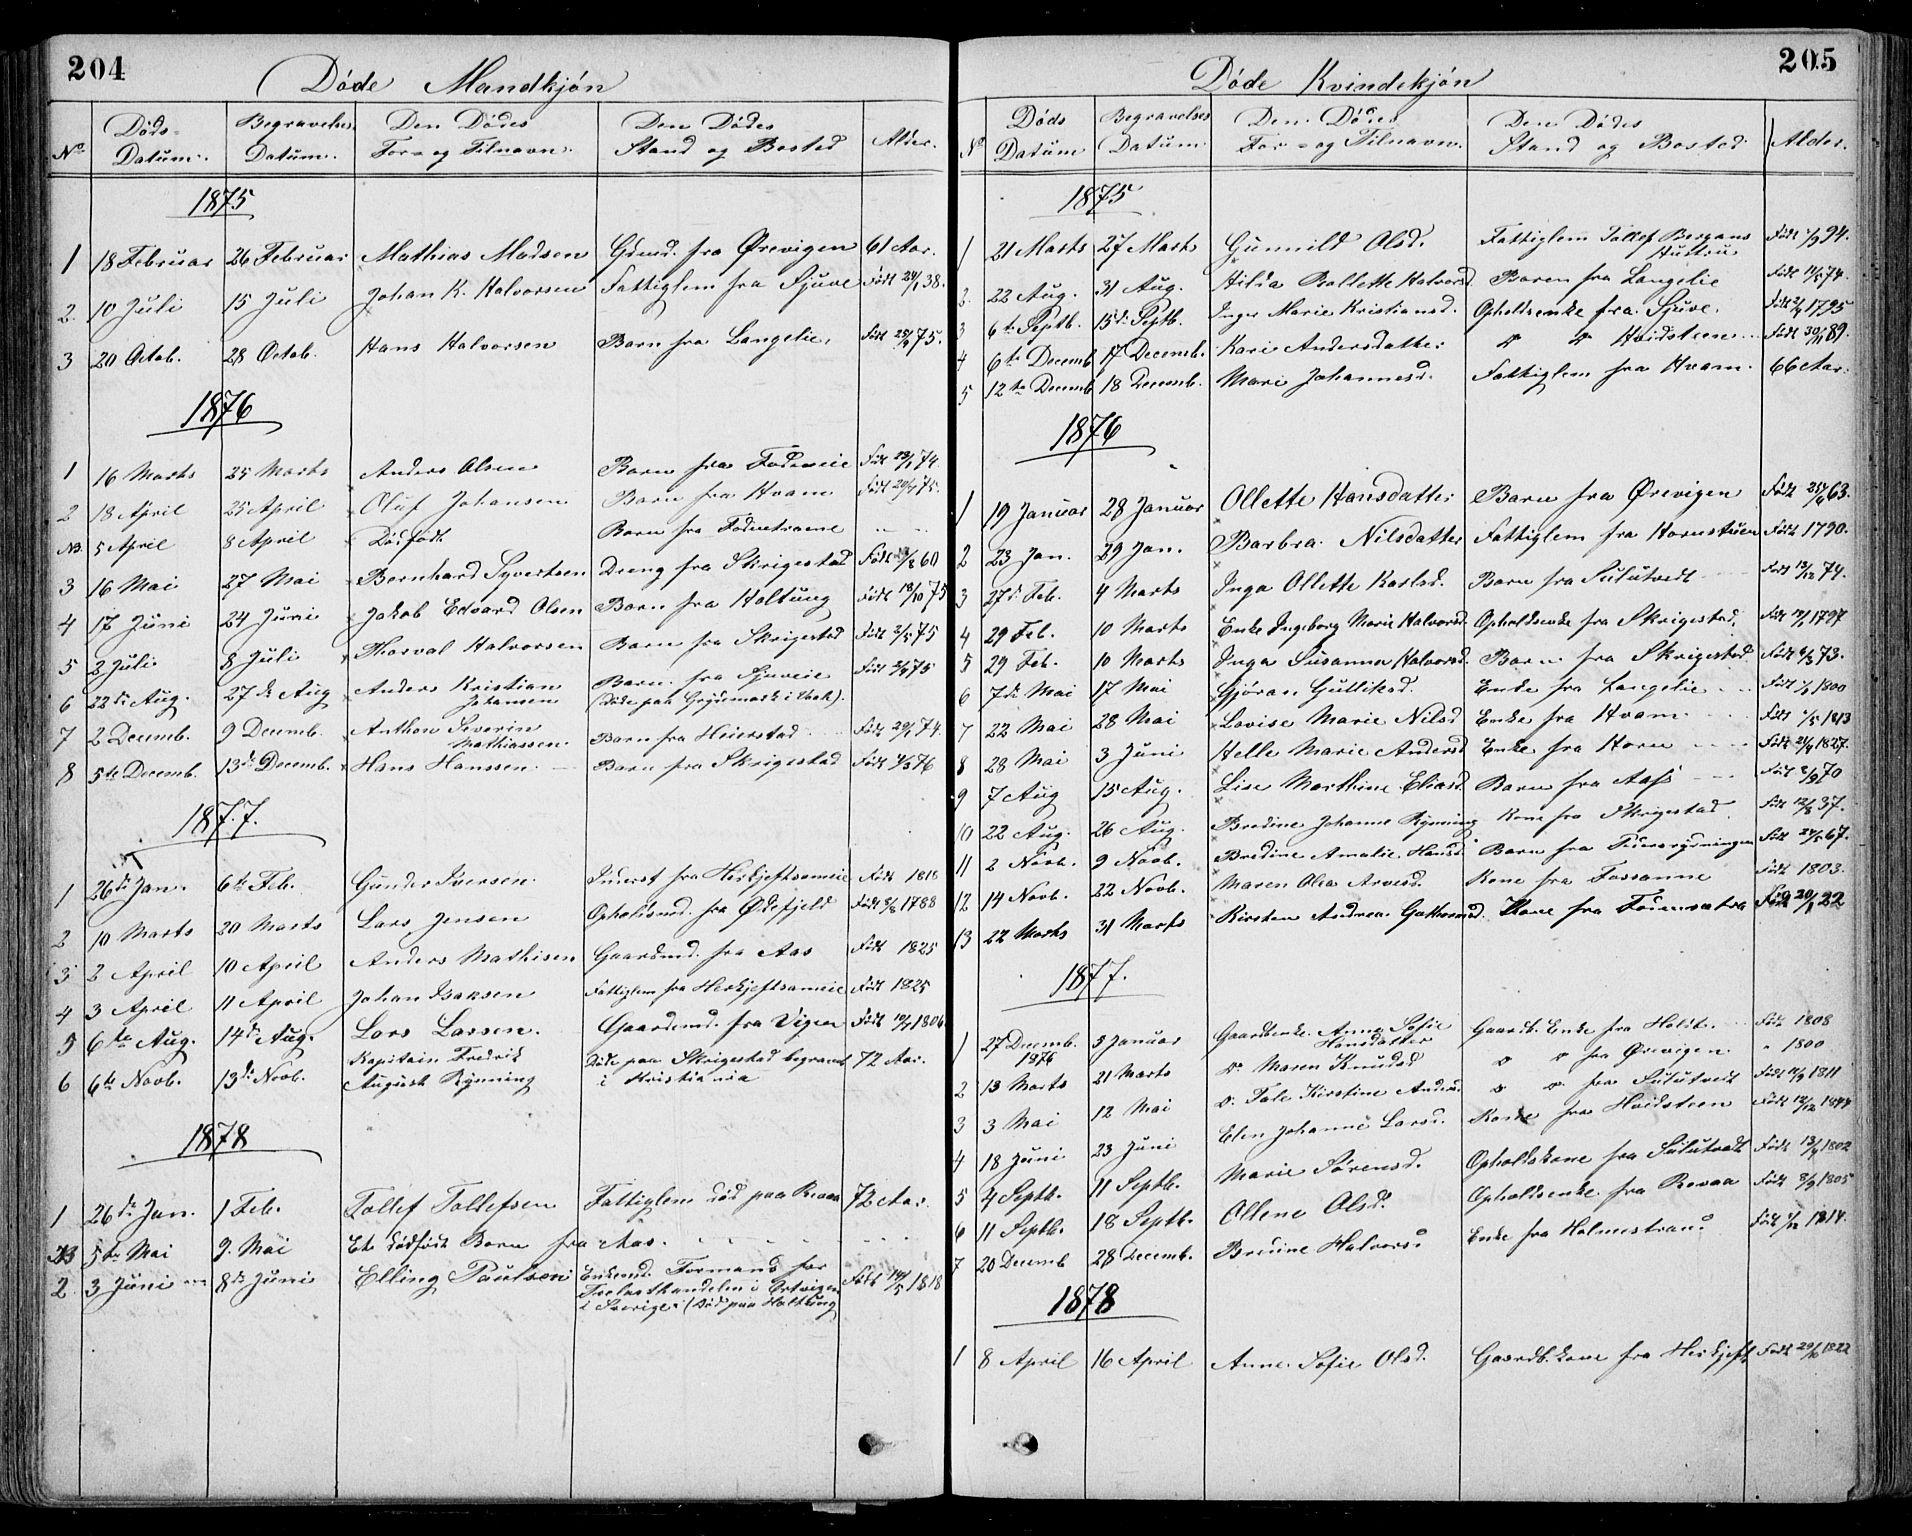 204
Døde Mandkjøn
No Døds- Datum. Begravelses Datum. Den Dødes For- og Tilnavn. Den Dødes Stand og Bosted Alder.
1875
1 18 Februar 26 Februar Mathias Madsen Grmd. fra Ørevigen 61 Aar.
2. 10 Juli 15 Juli Johan K. Halvorsen Fattiglem fra Sjuve Født 24/1 38.
3 20 Octob. 28 Octob. Hans Halvorsen Barn fra Langelie. Født 75.
1876
1 16 Marts 25 Marts Anders Olsen Barn fra Født 74.
2 18 April 25 April Oluf Johansen Barn fra Hvam Født 75.
NB. 5 April 8 April Dødfødt. Barn fra
3 16 Mai 27 Mai Bernhard Syvertsen Dreng fra Skrigestad Født 60
4 17 Juni 24 Juni Jakob Edvard Olsen Barn fra Holtung Født 18/10 75
5 2 Juli 8 Juli Thorval Halvorsen Barn fra Skrigestad Født 2/5 75
6 22de Aug. 27de Aug Anders Kristian Johansen Barn fra Født 75
7 2 Decemb. 9 Decemb. Anthon Severin Mathiassen. Barn fra Heierstad Født 74.
8 5te Decemb. 13de Decemb. Hans Hanssen. Barn fra Skrigestad Født 76
1877.
1 26de Jan. 6te Feb. Gunder Iversen. Inderst fra Født 1818
2 10 Marts 20 Marts Lars Jensen Opholdsmd. fra Ødefjeld Født 1788
3 2 April 10 April Anders Mathisen Gaardmd. fra Aas Født 1825
4 3 April 11 April Johan Isaksen Fattiglem fra Født 1825
5 6te Aug. 14de Aug. Lars Larsen. Gaardmd. fra Vigen Født 1806.
6 6te Novb. 13de Novb. Kapitain Fredrik August Rynning Døde paa Skrigestad begravet i Kristiania 72 Aar.
1878
1 26de Jan. 1 Feb. Tollef Tollefsen Fattiglem død paa Revaa 72 Aar.
5te Mai 9. Mai Et dødfødt Barn fra Aas.
2 3 Juni 8de Juni Elling Paulsen Enkemd. Formand for Trelasthandelen i i Sverige. (Død paa Holtung Født 14/5 1818
205
Døde Kvindekjøn
No Døds Datum Begravelses Datum Den Dødes For- og Tilnavn. Den Dødes Stand og Bosted Alder.
1875
1 21 Marts 27 Marts Gunnild Olsd. Fattiglem Tollef Bergans Hustru Født 94.
2. 22 Aug. 31 Aug. Hilda Halvorsd. Barn fra Langelie Født 74.
3 6te Septb. 15de Septb. Inger Marie Kristiansd. Opholdsenke fra Sjuve. Født 1795
4 6te Decemb 17 Decemb. Kari Andersdatter Hvidsteen Født 30/11 89.
5 12te Decemb 18 Decemb. Mari Johannesd. Fattiglem fra Hvam. 66 Aar.
1876
1 19 Januar 28 Januar Ollette Hansdatter Barn fra Ørevigen Født 63.
2 23 Jan. 29 Jan. Barbra Nilsdatter Fattiglem fra Hornstuen Født 1790.
3 27de Feb. 4 Marts Inga Ollette Karlsd. Barn fra Sulutvedt Født 13/12 74.
4 29 Feb. 10 Marts Enke Ingeborg Marie Halvorsd. Opholdsenke fra Skrigestad. Født 1797
5 29 Feb. 10 Marts Inga Susanna Halvorsd. Barn fra Skrigestad Født 73.
6 7de Mai 17 Mai Gjøran Gulliksd. Enke fra Langelie Født 1800
7 22 Mai 28 Mai Lovise Marie Nilsd Enke fra Hvam. Født 1813
8 28 Mai 3 Juni Helle Marie Andersd Enke fra Horn Født 1827.
9 7 Aug 15 Aug. Lise Marthine Eliasd. Barn fra Aas Født 70
10 22 Aug. 26 Aug. Bredine Johanne Rynning Kone fra Skrigestad Født 37.
11 2 Novb. 9 Novb. Bredine Amalie Hansd Barn fra Født 67.
12 14 Novb. 22 Novb. Maren Olea Arvesd. Kone fra Fossanne Født 1803.
13 22 Marts 31 Marts Kirsten Andrea Kone fra Født 22
1877.
1 27 Decemb. 1876 5 Januar Gaardenke Anne Sofie Hansdatter Gaardb. Enke fra Holst. Født 1808
2 13 Marts 21 Marts Do Maren Knudsd do do fra Ørevigen. " 1800
3 3 Mai 12 Mai Do. Tale Kirstine Andersd. do do fra Sulutvedt Født 1811
4 18 Juni 23 Juni Elen Johanne Larsd. Kone fra Hvidsteen Født 12/12 1844
5 4 Septb. 11 Septb. Marie Sørensd. Opholdskone fra Sulutvedt Født 1802
6 11 Septb. 18 Septb. Ollene Olsd. Opholdsenke fra Revaa Født 1805
7 20 Decemb 28 Decemb. Bredine Halvorsd Enke fra Holmestrand Født 1814.
1878
1 8 April 16 April Anne Sofie Olsd. Gaardb. kone fra Født 1822